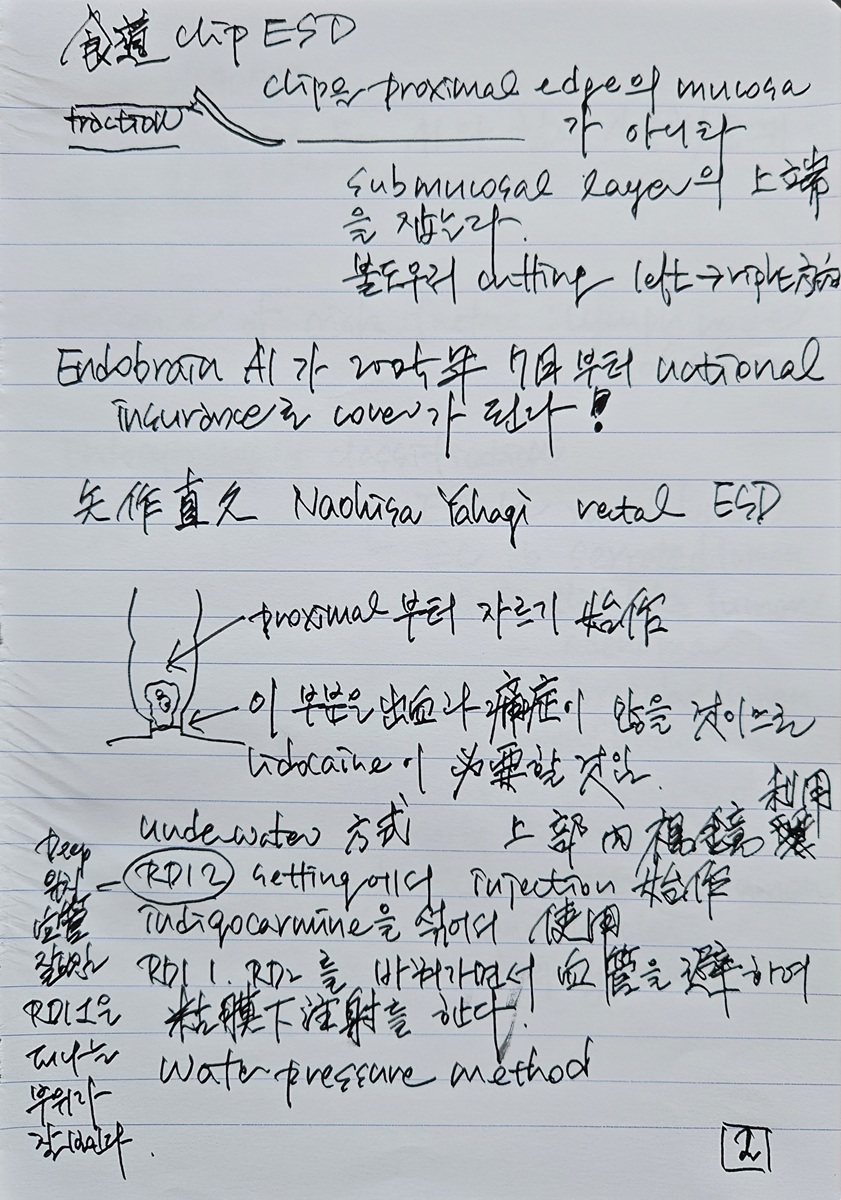 食道 clip ESD
traction
clip은 proximal edge의 mucosa
가 아니라
submucosal layer의 上端
을 잡는다.
cutting left → right 方向
Endobrain AI가 年 7月부터 national
insurance로 cover가 된다!
矢作直久 Naohisa Yahagi rectal ESD
proximal부터 자르기 始作
이 부분은 出血과 痛症이 많을 것이므로
lidocaine이 必要할 것임.
underwater 方式 上部内視鏡 利用
RDI 2 setting에서 injection 始作
indigocarmine을 섞어서 使用
RDI 1, RD2를 바꿔가면서 血管을 避하여
粘膜下注射를 한다!
Water pressure method
Deep
血管
RDI 1은
2